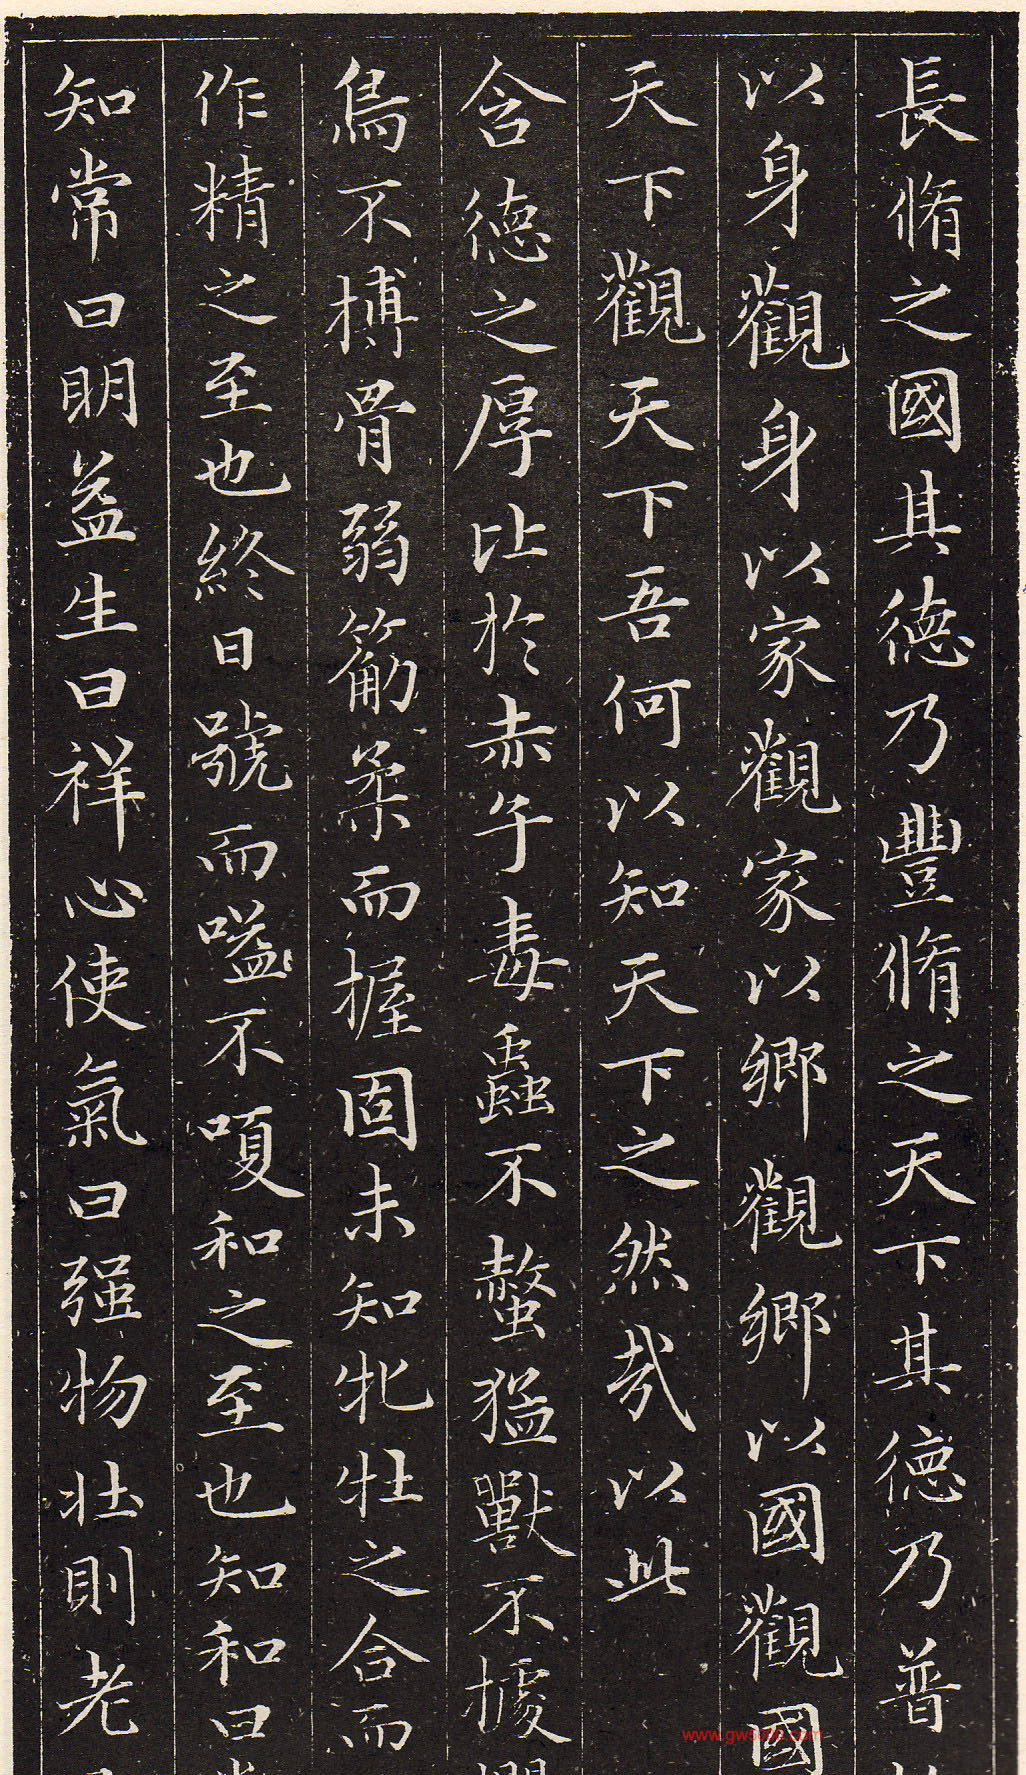 長脩之國其德乃豐脩之天下其德乃普
以身觀身以家觀家以鄉觀鄉以國觀國
天下觀天下吾何以知天下之然哉以此
含德之厚比於赤子毒蟲不螫猛獸不據
鳥不搏骨弱筋柔而握固未知牝牡之合而
作精之至也終日號而嗌不嗄和之至也知和曰
知常曰明益生曰祥心使氣曰强物壯則老
www.gw5000.com